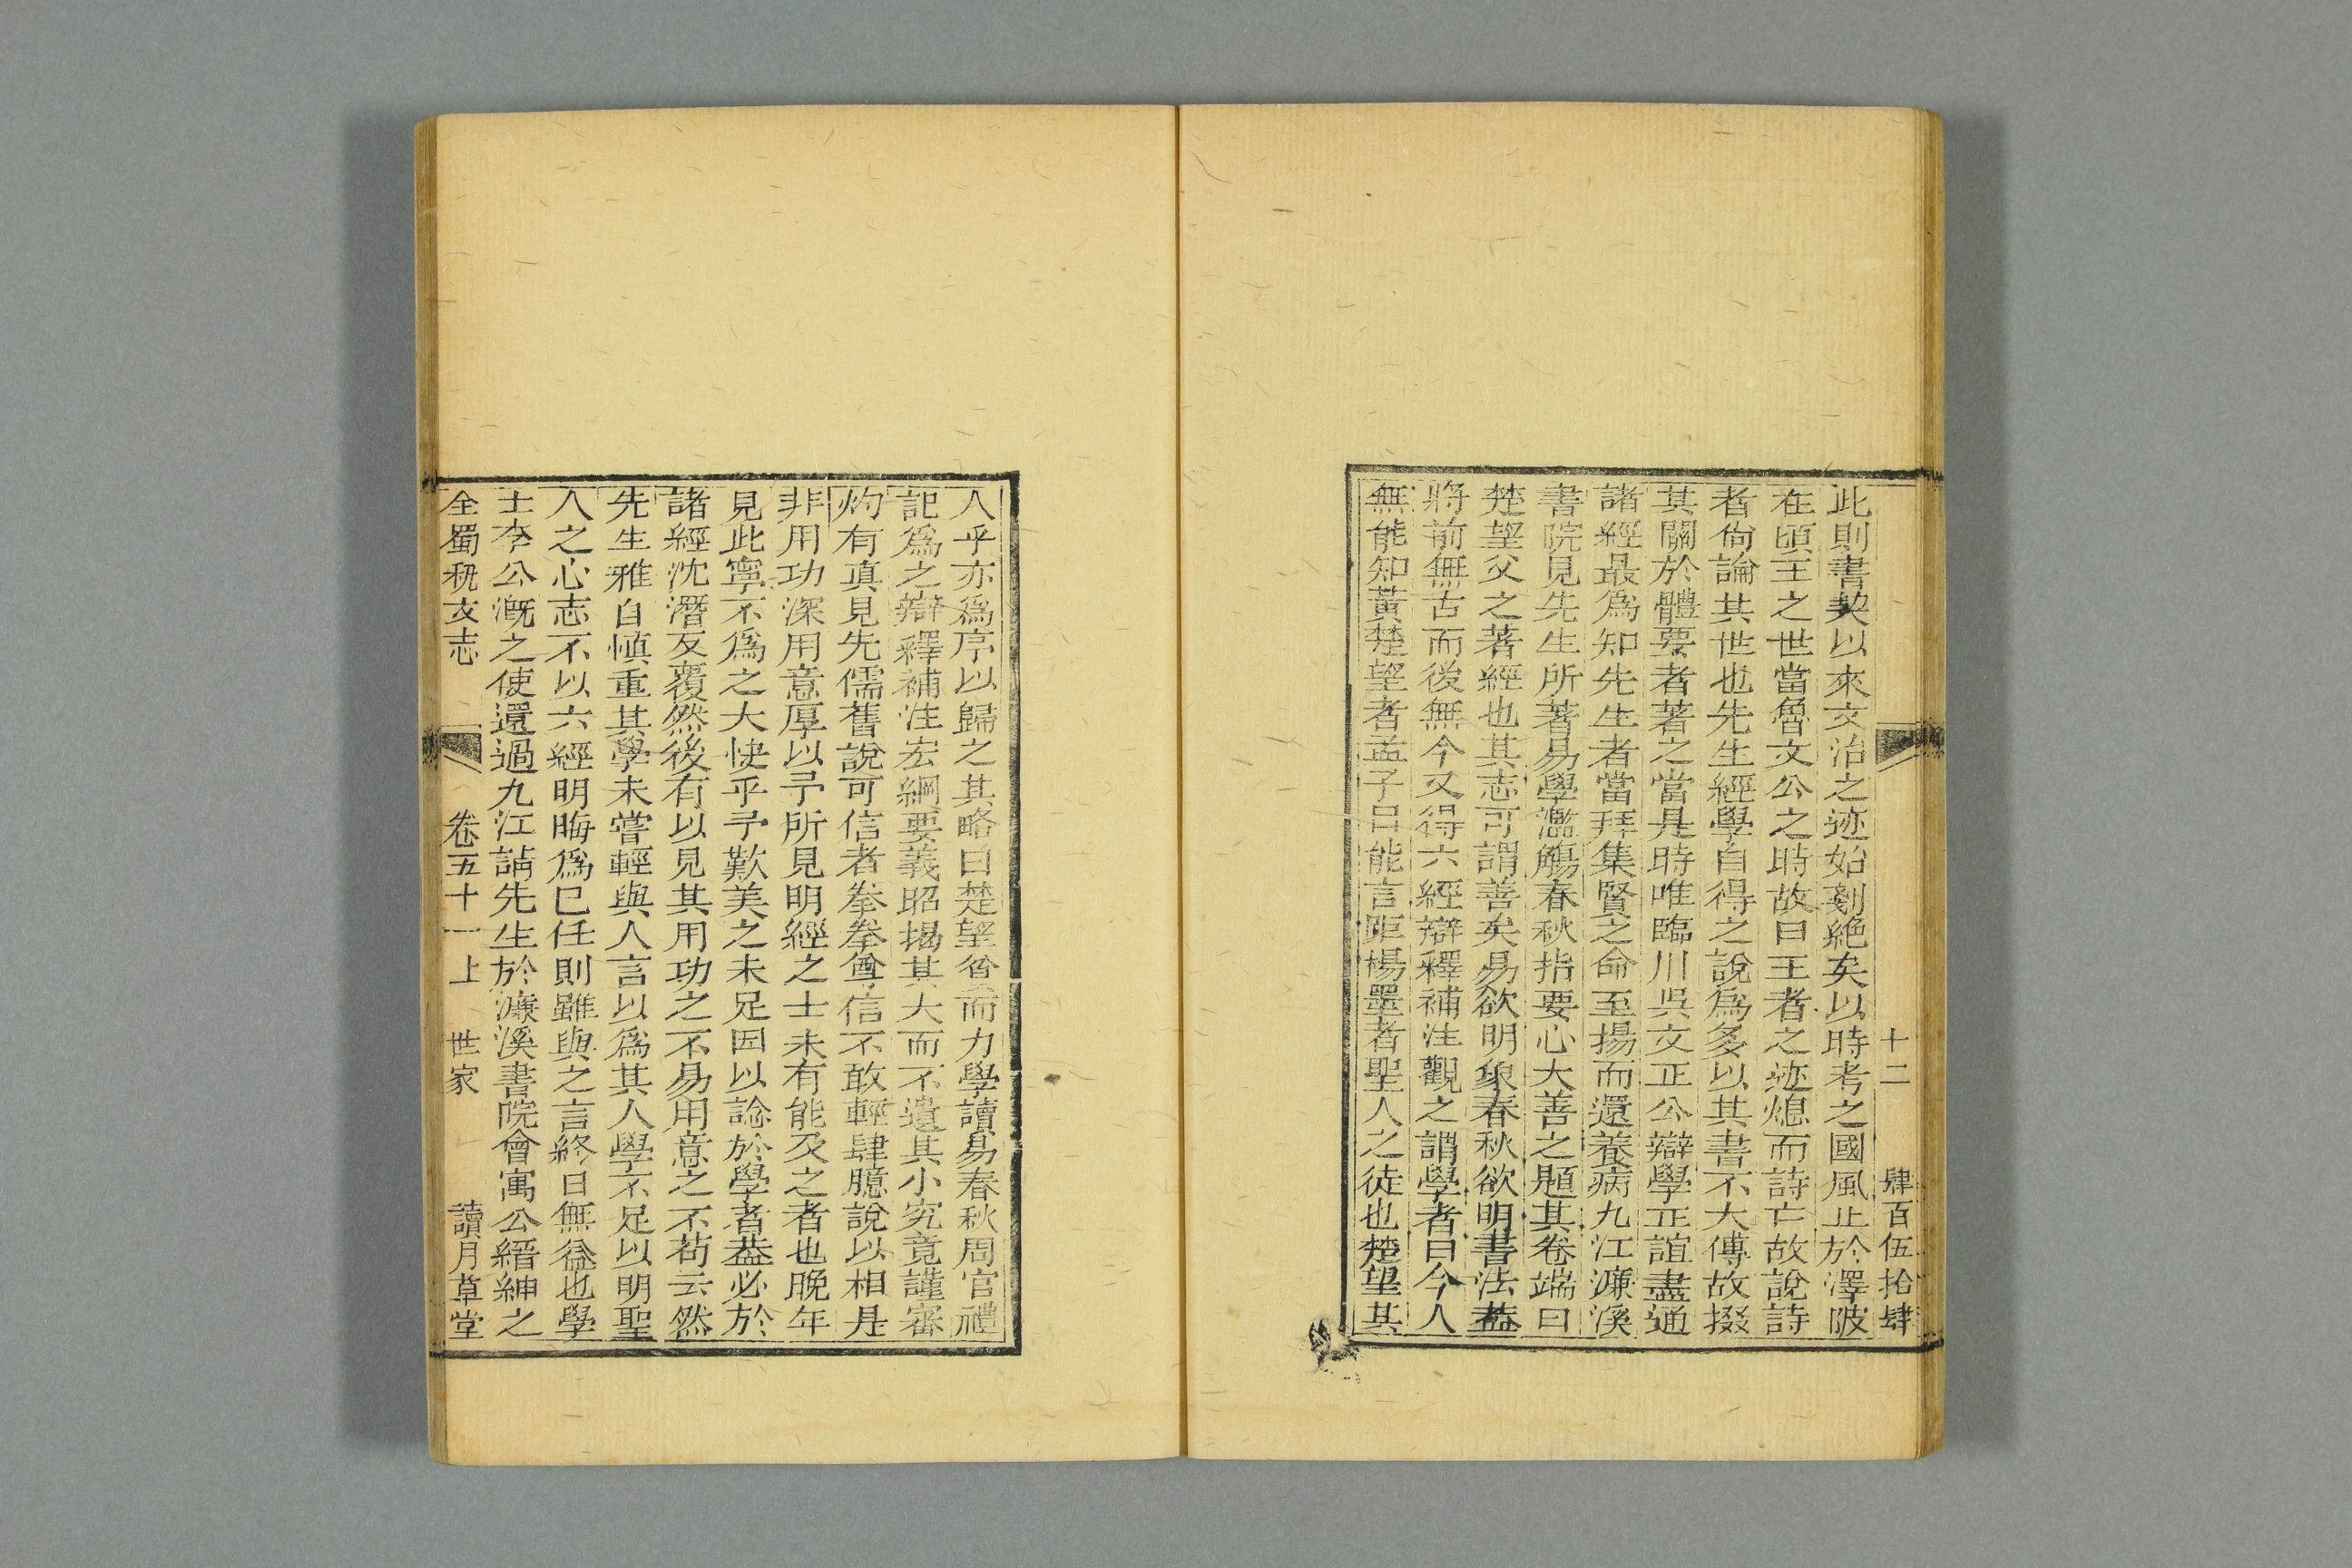 十二　肆百伍拾肆
此則書契以來文治之迹始剗絕矣以時考之國風止於澤陂
在頃王之世當魯文公之時故曰王者之迹熄而詩亡故說詩
者尙論其世也先生經學自得之說爲多以其書不大傳故掇
其關於體要者著之當是時唯臨川吳文正公辯學正誼盡通
諸經最爲知先生者當拜集賢之命至揚而還養病九江濂溪
書院見先生所著易學濫觴春秋指要心大善之題其卷端曰
楚望父之著經也其志可謂善矣易欲明象春秋欲明書法葢
將前無古而後無今又得六經辯釋補注觀之謂學者曰今人
無能知黃楚望者孟子曰能言距楊墨者聖人之徒也楚望其
人乎亦爲序以歸之其略曰楚望父而力學讀易春秋周官禮
記爲之辯釋補注宏綱要義昭揭其大而不遺其小究竟謹審
灼有眞見先儒舊說可信者拳拳尊信不敢輕肆臆說以相是
非用功深用意厚以予所見明經之士未有能及之者也晚年
見此寧不爲之大快乎予歎美之未足因以諗於學者葢必於
諸經沈潛反覆然後有以見其用功之不易用意之不苟云然
先生雅自愼重其學未嘗輕與人言以爲其人學不足以明聖
人之心志不以六經明晦爲已任則雖與之言終日無益也學
士李公溉之使還過九江請先生於濂溪書院會寓公縉紳之
全蜀秇文志　卷五十一上　世家　讀月草堂